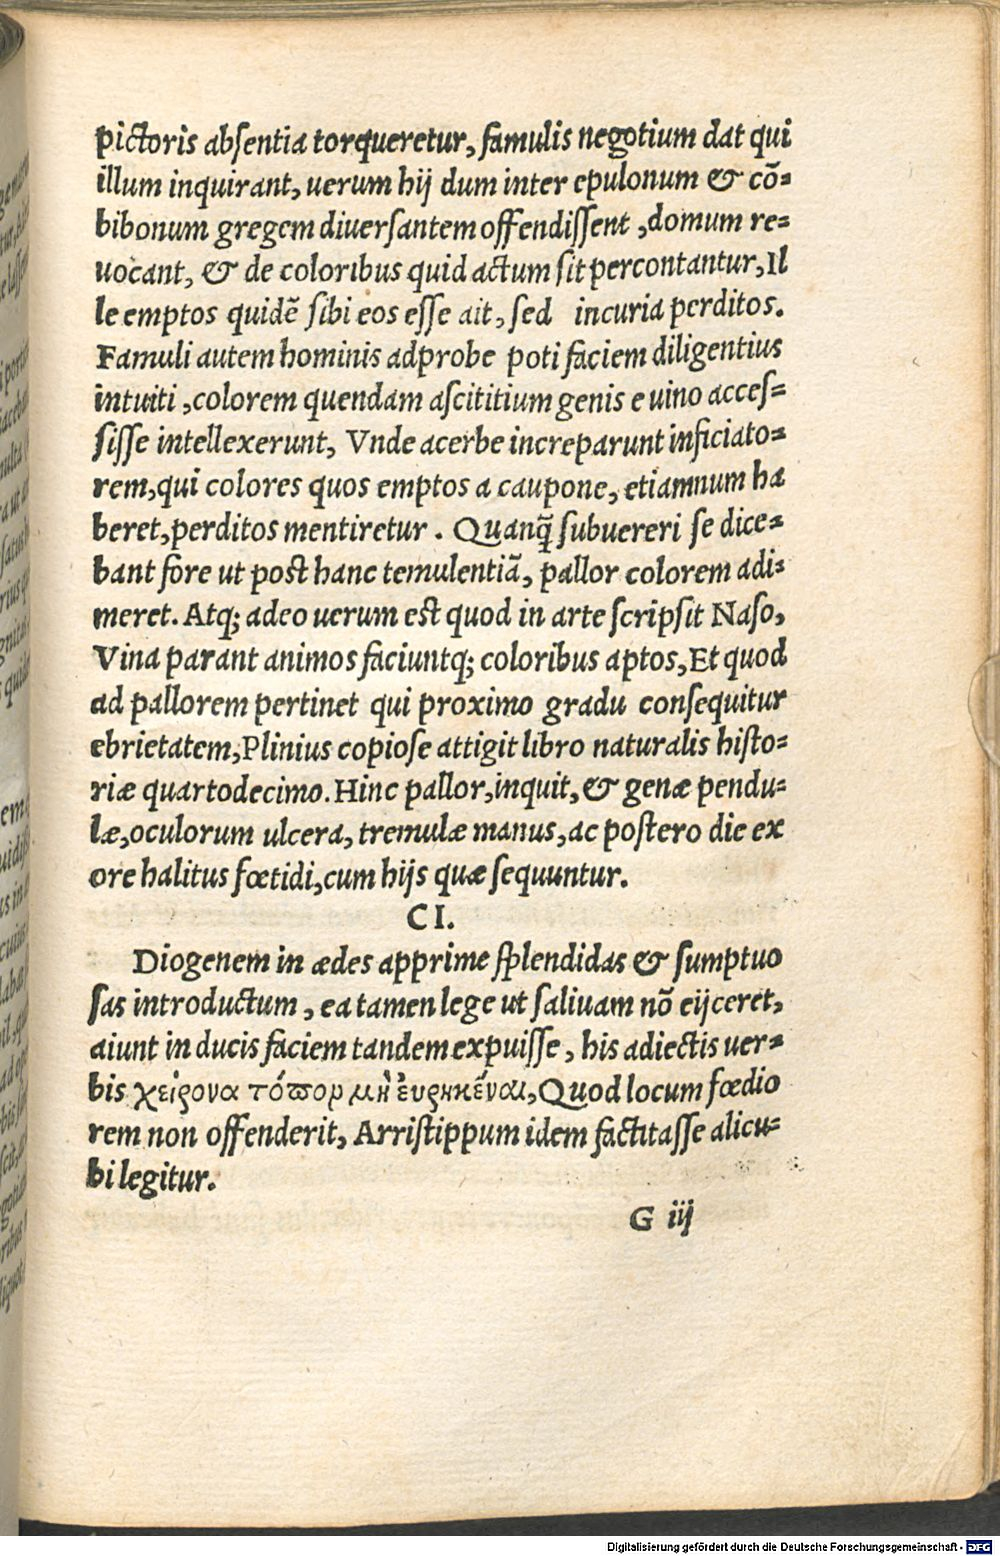 pictoris absentia torqueretur, famulis negotium dat qui
illum inquirant, uerum hij dum inter epulonum & cõ-
bibonum gregem diuersantem offendissent, domum re-
uocant, & de coloribus quid actum sit percontantur, Il
le emptos quidẽ sibi eos esse ait, sed incuria perditos.
Famuli autem hominis adprobe poti faciem diligentius
intuiti, colorem quendam ascititium genis e uino acces-
sisse intellexerunt, Vnde acerbe increparunt inficiato-
rem, qui colores quos emptos a caupone, etiamnum ha
beret, perditos mentiretur. Quanq̃ subuereri se dice-
bant fore ut post hanc temulentiã, pallor colorem adi-
meret. Atq; adeo uerum est quod in arte scripsit Naso,
Vina parant animos faciuntq; coloribus aptos, Et quod
ad pallorem pertinet qui proximo gradu consequitur
ebrietatem, Plinius copiose attigit libro naturalis histo-
riæ quartodecimo. Hinc pallor, inquit, & genæ pendu-
læ, oculorum ulcera, tremulæ manus, ac postero die ex
ore halitus fœtidi, cum hijs quæ sequuntur.
CI.
Diogenem in ædes apprime splendidas & sumptuo
sas introductum, ea tamen lege ut saliuam nõ eijceret,
aiunt in ducis faciem tandem expuisse, his adiectis uer-
bis χείρονα τόπον μὴ ἑυρηκέναι, Quod locum fœdio
rem non offenderit, Arristippum idem factitasse alicu-
bi legitur.
G iij
Digitalisierung gefördert durch die Deutsche Forschungsgemeinschaft - DFG